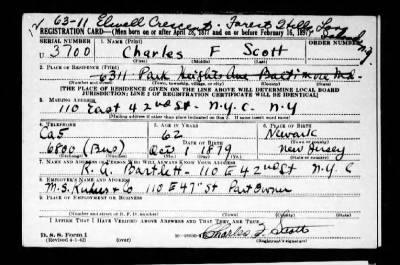 63-11 Elwell Crescent - Forest Hills L.
Island, N.Y.
REGISTRATION CARD—(Men born on or after April 28, 1877 and on or before February 16, 1897)
SERIAL NUMBER 1. NAME (Print) ORDER NUMBER
U 3700 Charles F Scott
(First) (Middle) (Last)
2. PLACE OF RESIDENCE (Print)
6311 Park Heights Ave Baltimore Md.
(Number and street) (Town, township, village, or city) (County) (State)
[THE PLACE OF RESIDENCE GIVEN ON THE LINE ABOVE WILL DETERMINE LOCAL BOARD
JURISDICTION; LINE 2 OF REGISTRATION CERTIFICATE WILL BE IDENTICAL]
3. MAILING ADDRESS
110 East 42nd St - N.Y.C. N.Y
[Mailing address if other than place indicated on line 2. If same insert word same]
4. TELEPHONE 5. AGE IN YEARS 6. PLACE OF BIRTH
Ca5 62 Newark
DATE OF BIRTH (Town or county)
6800 (Bus) Oct 1 1879 New Jersey
(Exchange) (Number) (Mo.) (Day) (Yr.) (State or country)
7. NAME AND ADDRESS OF PERSON WHO WILL ALWAYS KNOW YOUR ADDRESS
R. A. Bartlett - 110 E 42nd St N.Y.C
8. EMPLOYER'S NAME AND ADDRESS
110 E 42" St Part Owner
9. PLACE OF EMPLOYMENT OR BUSINESS
(Number and street or R. F. D. number) (Town) (County) (State)
I AFFIRM THAT I HAVE VERIFIED ABOVE ANSWERS AND THAT THEY ARE TRUE.
D. S. S. Form 1 Charles F. Scott
(Revised 4-1-42) (over) (Registrant's signature)